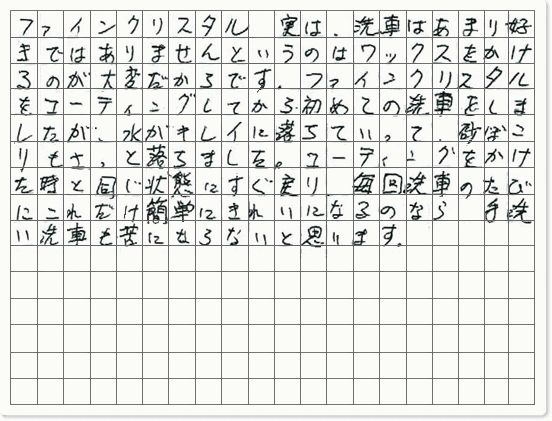 ファインクリスタル　実は、洗車はあまり好
きではありませんというのはワックスをかけ
るのが大変だからです。ファインクリスタル
をコーティングしてから初めての洗車をしま
したが、水がキレイに落ちていって、砂ぼこ
りもさっと落ちました。コーティングをかけ
た時と同じ状態にすぐ戻り、毎回洗車のたび
にこれだけ簡単にきれいになるのなら　手洗
い洗車も苦にならないと思います。